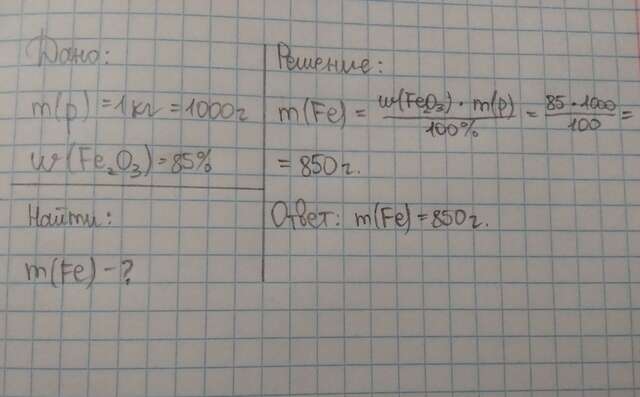 Дано:
m(р) = 1 кг = 1000 г
w(Fe₂O₃) = 85%
Найти:
m(Fe) - ?
Решение:
m(Fe) = w(FeO₃) · m(р) / 100% = 85 · 1000 / 100 =
= 850 г.
Ответ: m(Fe) = 850 г.